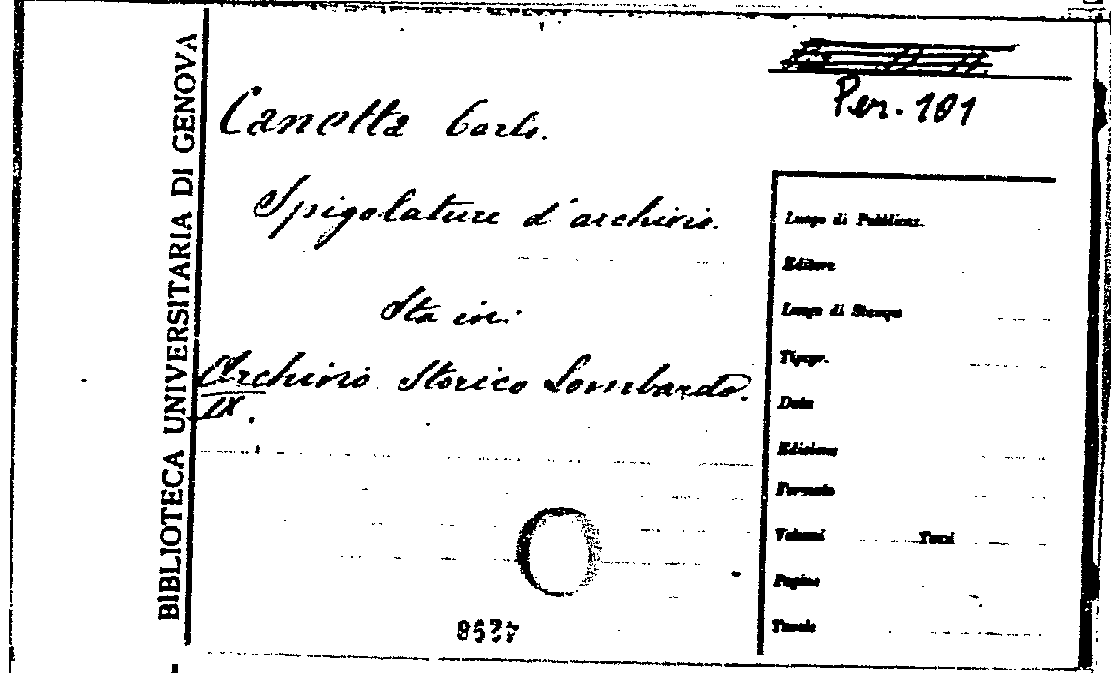 BIBLIOTECA UNIVERSITARIA DI GENOVA
Per. 101
Canetta Carlo.
Spigolature d'archivio.
Sta in:
Archivio Storico Lombardo.
IX.
Luogo di Pubblicaz.
Editore
Luogo di Stampa
Tipogr.
Data
Edizione
Formato
Volumi Tomi
Pagine
Tavole